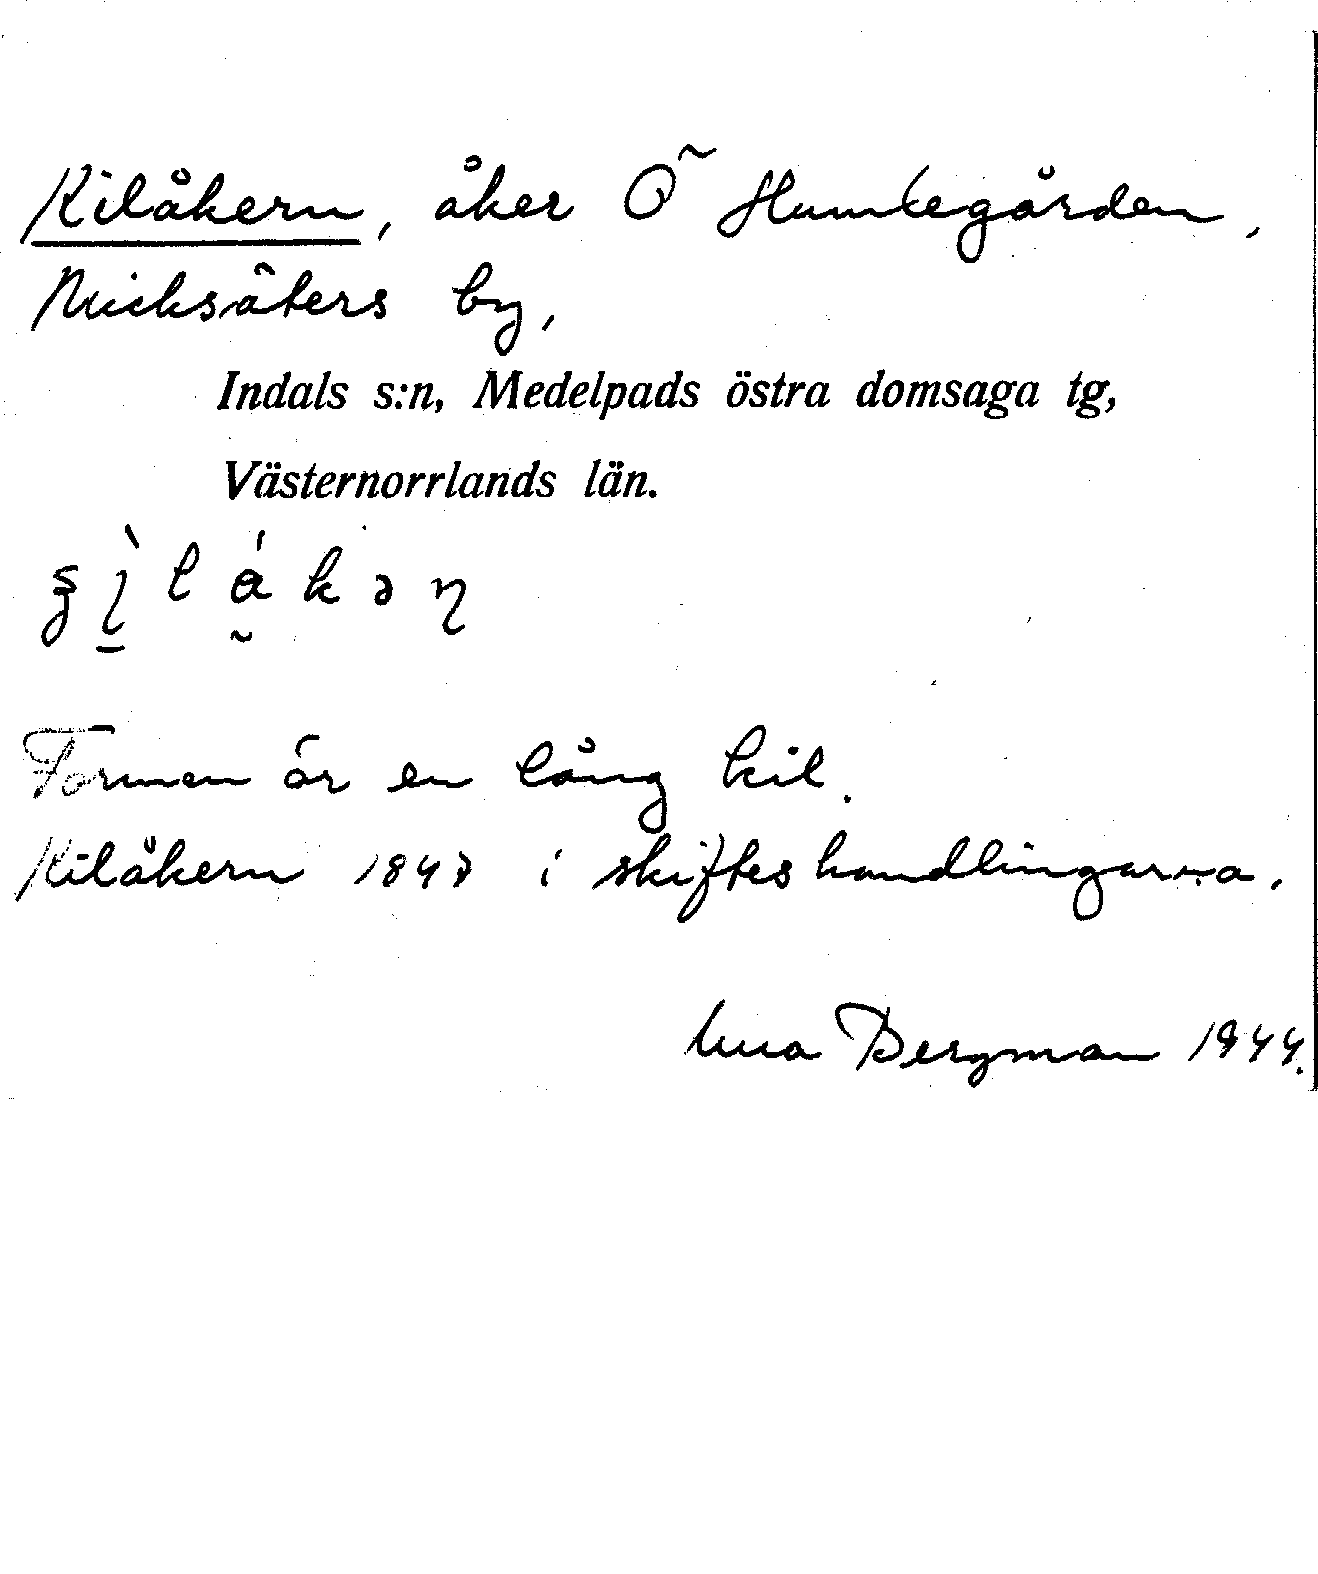 Kilåkern, åker Ö Humlegården,
Nicksäters by,
Indals s:n, Medelpads östra domsaga tg,
Västernorrlands län.
Formen är en lång kil.
Kilåkern 1847 i skifteshandlingarna.
Bergman 1944.